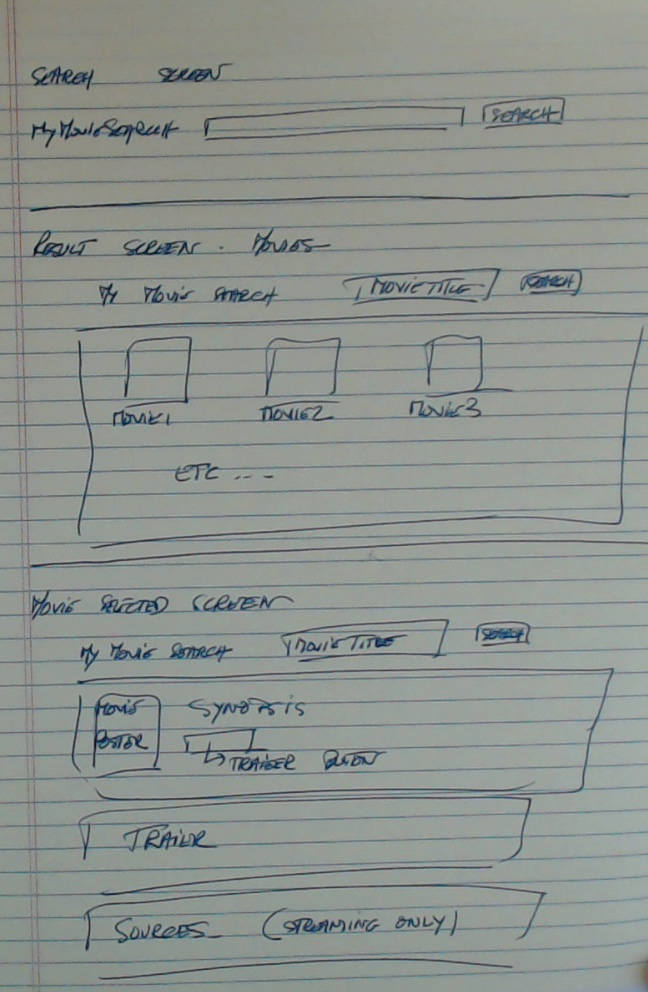 SEARCH SCREEN
MyMovieSEARCH SEARCH
RESULT SCREEN. MOVIES
My Movie SEARCH MOVIE TITLE SEARCH
MOVIE1 MOVIE2 MOVIE3
ETC ...-
MOVIE SELECTED SCREEN
My Movie SEARCH MOVIE TITLE SEARCH
MOVIE SYNOPSIS
POSTER
↳ TRAILER BUTTON
TRAILR
SOURCES (STREAMING ONLY)